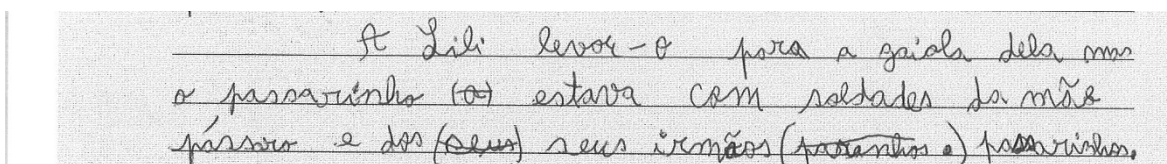 A Lili levou-o para a gaiola dela mas
o passarinho (o) estava com soldades da mãe
pássaro e dos (seus) seus irmãos (passarinhos e) passarinhos.